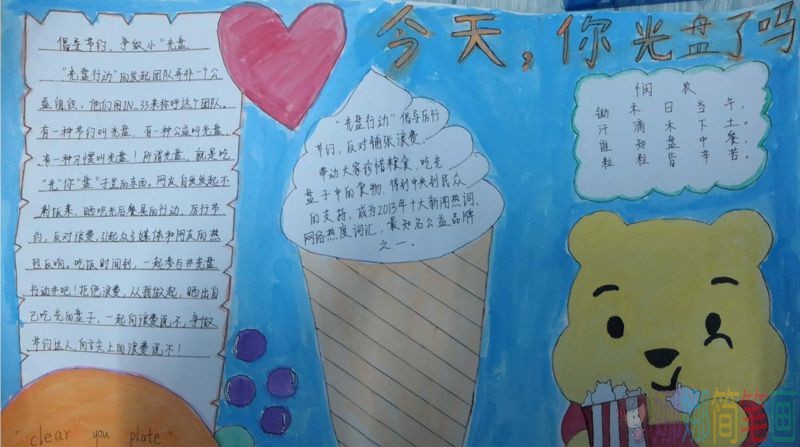 今天,你光盘了吗
倡导节约、争做小"光盘
"光盘行动"的发起团队并非一个公
益组织,他们用IN_33来称呼这个团队。
有一种节约叫光盘,有一种公益叫光盘,
有一种习惯叫光盘!所谓光盘,就是吃
"光"你"盘"子里的东西。网友自发发起不
剩饭菜,晒吃光后餐具的行动,厉行节
约,反对浪费,引起众多媒体和网友的热
烈反响。吃饭时间到,一起参与#光盘
行动#吧!拒绝浪费,从我做起,晒出自
己吃光的盘子,一起向浪费说不,争做
节约达人,向舌尖上的浪费说不!
"clear you plate"
"光盘行动"倡导厉行
节约,反对铺张浪费,
带动大家珍惜粮食、吃光
盘子中的食物,得到中央到民众
的支持,成为2013年十大新闻热词、
网络热度词汇,最知名公益品牌
之一.
悯农
锄禾日当午,
汗滴禾下土。
谁知盘中餐,
粒粒皆辛苦。
简笔画